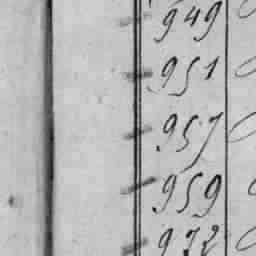 949
951
957
959
972